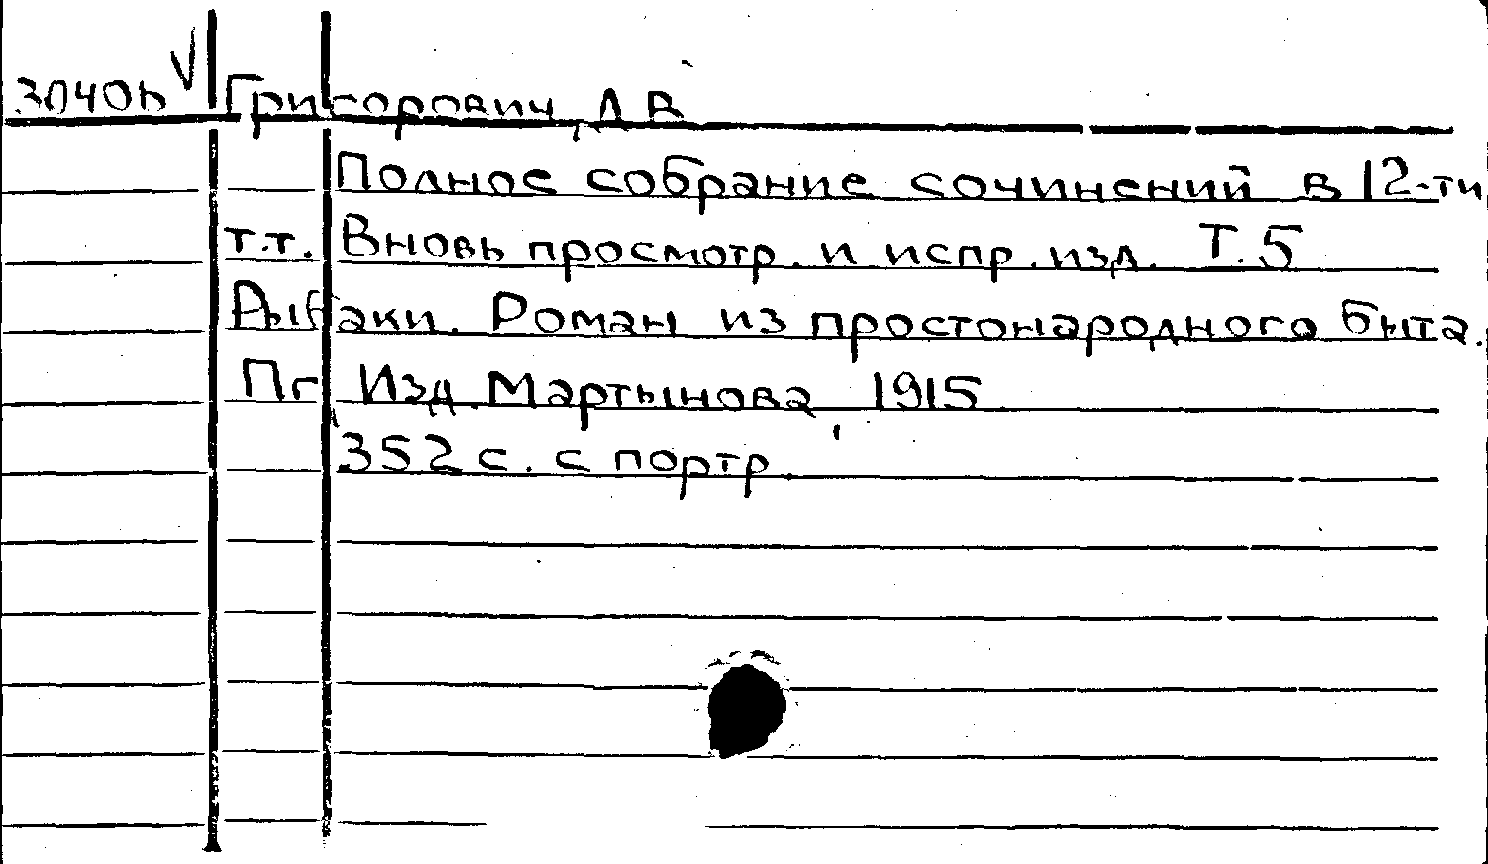 30406 V Григорович, Д В
Полное собрание сочинений в 12-ти
т.т. Вновь просмотр. и испр. изд. Т. 5
Рыбаки. Роман из простонародного быта.
Пг Изд. Мартынова, 1915
352 с. с портр.